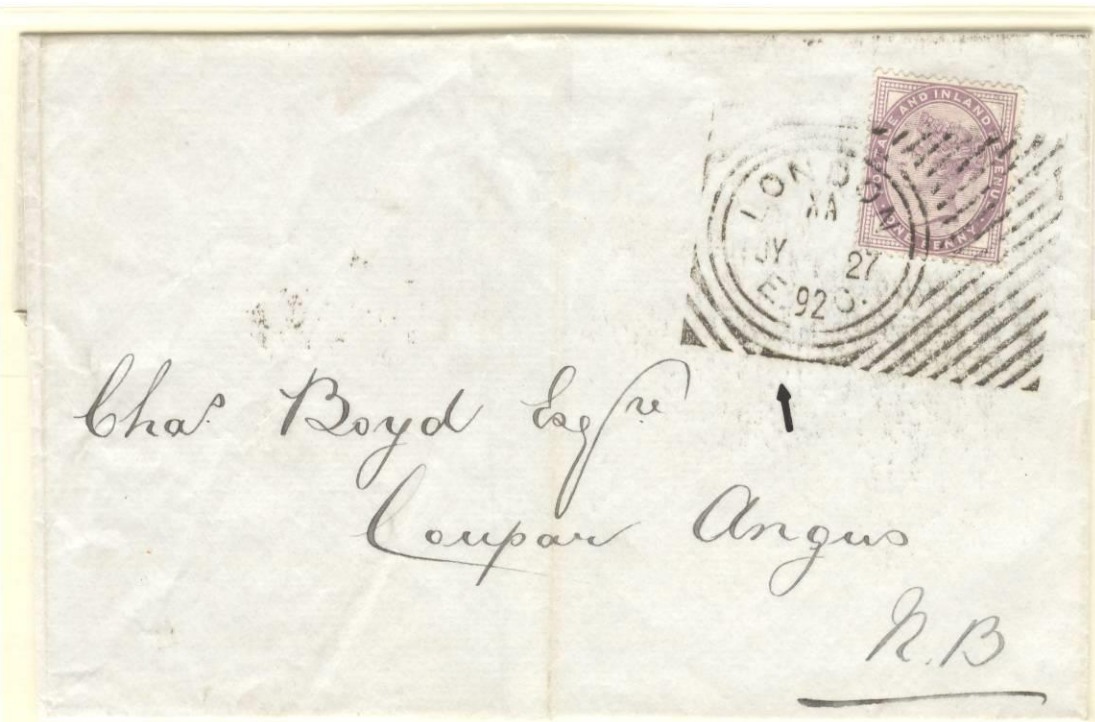 POSTAGE AND INLAND REVENUE
ONE PENNY
LONDON
JY 27
92
E.C.
Chas. Boyd Esqre
Coupar Angus
N.B